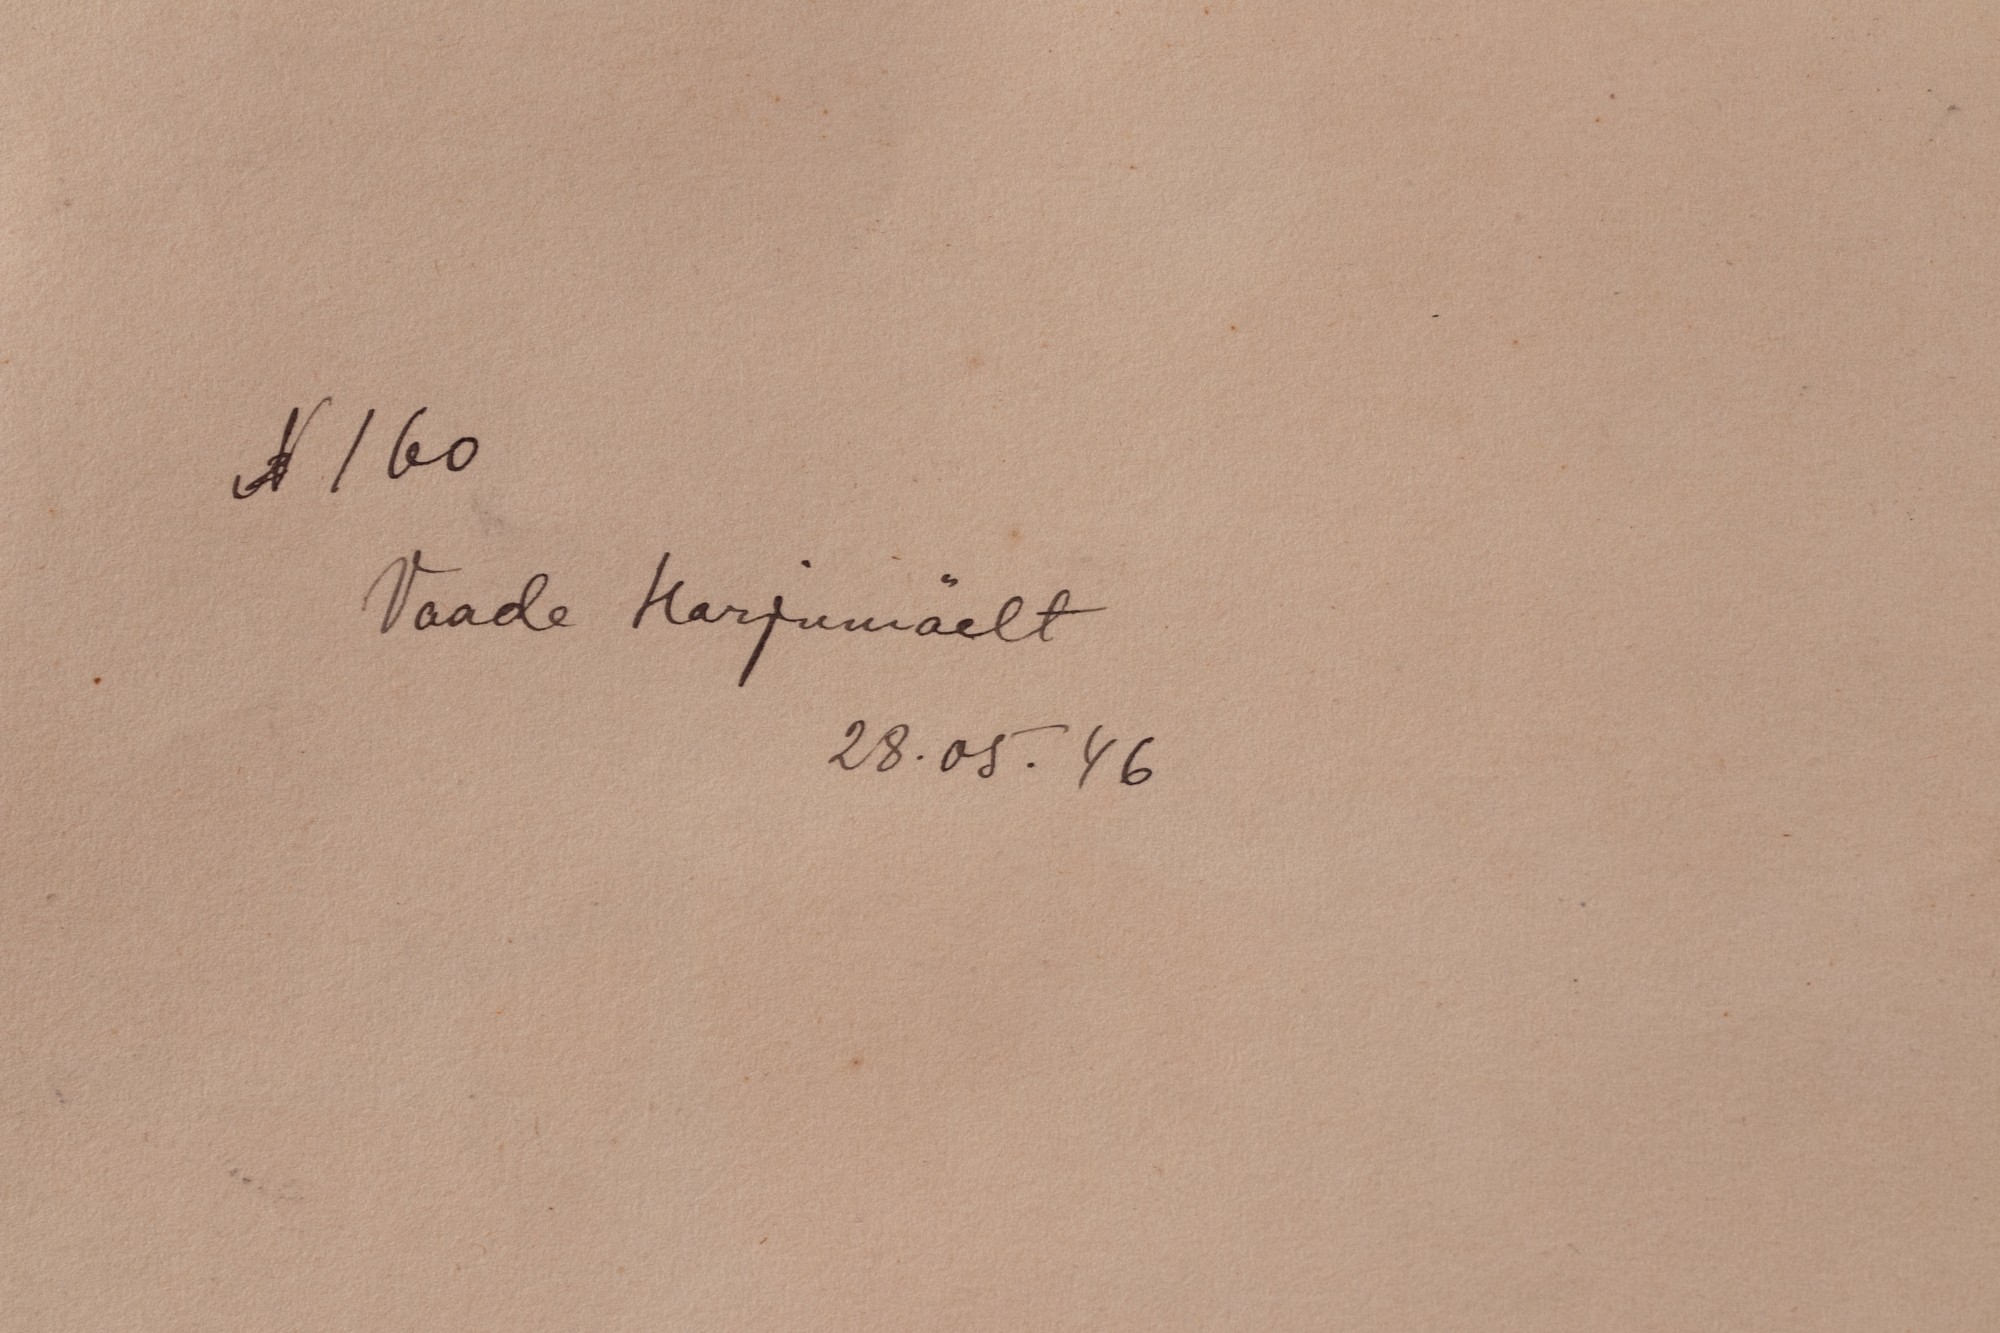 N 160
Vaade Harjumäelt
28.05.46